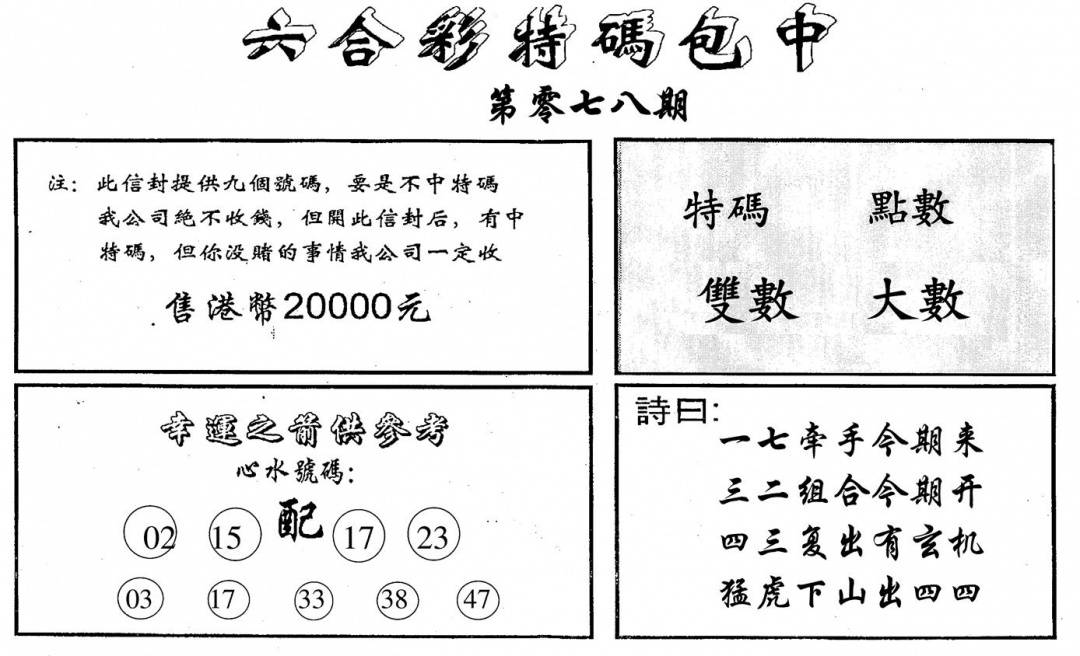 六合彩特碼包中
第零七八期
注：此信封提供九個號碼，要是不中特碼
我公司絕不收錢，但開此信封后，有中
特碼，但你没賭的事情我公司一定收
售港幣20000元
特碼 點數
雙數 大數
幸運之箭供參考
心水號碼：
配
02 15 17 23
03 17 33 38 47
詩曰：
一七牽手今期来
三二组合今期开
四三复出有玄机
猛虎下山出四四